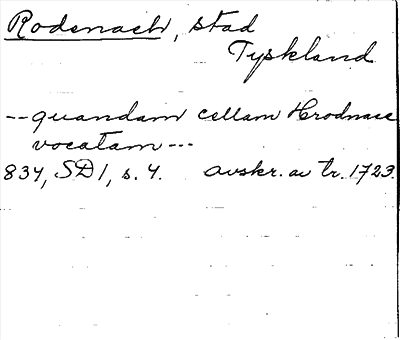 Rodenach, stad
Tyskland
-- quandam cellam Hrodnace
vocatam ---
834, SD 1, s. 4. avskr. av tr. 1723.